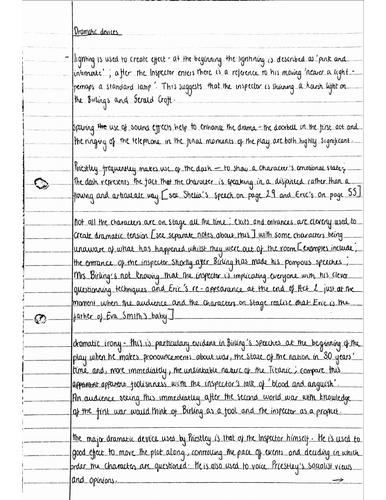 Dramatic devices
- lighting is used to create effect - at the beginning the lightning is described as 'pink and
intimate'; after the Inspector enters there is a reference to his moving 'nearer a light -
perhaps a standard lamp'. This suggests that the inspector is shining a harsh light on
the Birlings and Gerald Croft.
Sparing the use of sound effects help to enhance the drama - the doorbell in the first act and
the ringing of the telephone in the final moments of the play are both highly significant.
Priestley frequently makes use of the dash - to show a character's emotional state;
The dash represents the fact that the character is speaking in a disjointed rather than a
flowing and articulate way [see Sheila's speech on page 29 and Eric's on page 55]
Not all the characters are on stage all the time; exits and entrances are cleverly used to
create dramatic tension [see separate notes about this] with some characters being
unaware of what has happened whilst they were out of the room [examples include;
the entrance of the inspector shortly after Birling has made his pompous speeches;
Mrs Birling's not knowing that the inspector is implicating everyone with his clever
questionning techniques and Eric's re-appearance at the end of Act 2 just at the
moment when the audience and the characters on stage realise that Eric is the
father of Eva Smith's baby]
dramatic irony - this is particulary evident in Birling's speeches at the beginning of the
play when he makes pronouncements about war, the state of the nation in 30 years'
time and, more immediately, the unsinkable nature of the Titanic; compare this
apparent foolishness with the inspector's talk of 'blood and anguish'.
An audience seeing this immediately after the second world war with knowledge
of the first war would think of Birling as a fool and the inspector as a prophet.
The major dramatic device used by Priestley is that of the Inspector himself. He is used to
good effect to move the plot along, controlling the pace of events and deciding in which
order the characters are questioned. He is also used to voice Priestley's socialist views
and opinions. →